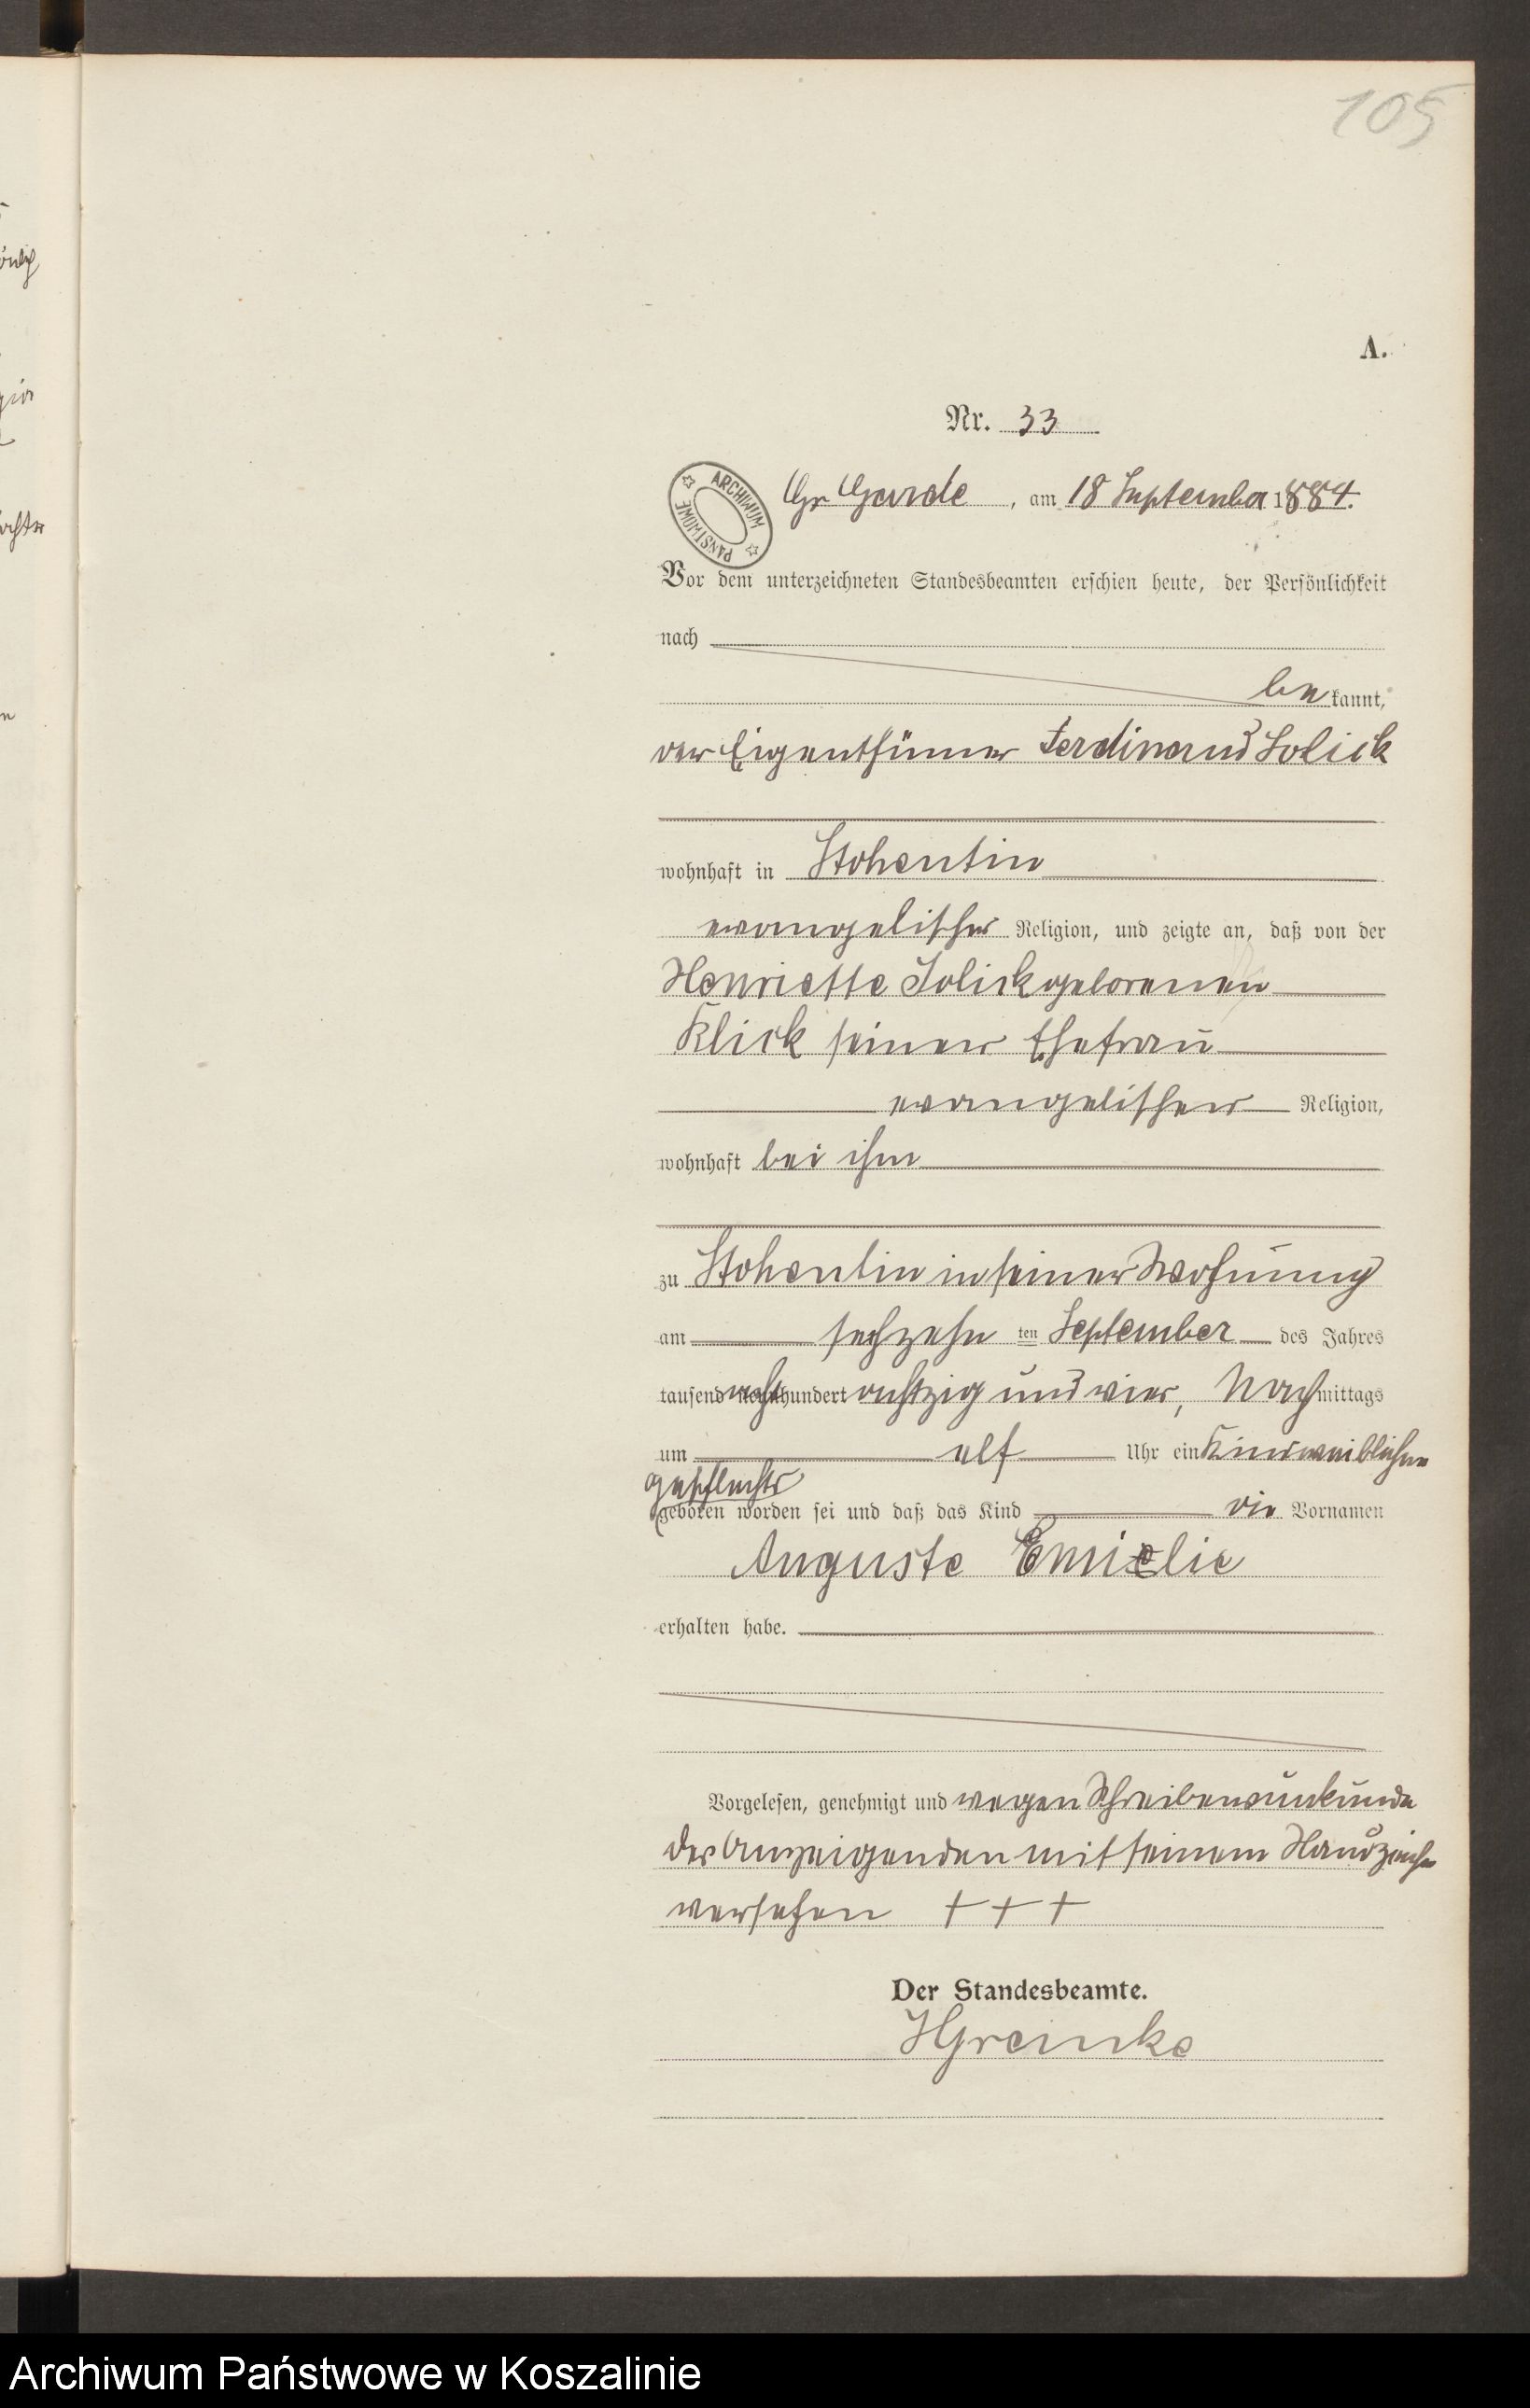 105
A.
Nr. 33
ARCHIWUM PAŃSTWOWE
Gr Garde, am 18 September 1884.
Vor dem unterzeichneten Standesbeamten erschien heute, der Persönlichkeit
nach
be kannt,
der Eigenthümer Ferdinand Solick
wohnhaft in Stohentin
evangelischer Religion, und zeigte an, daß von der
Henriette Solick geborenen
Klick seiner Ehefrau
evangelischer Religion,
wohnhaft bei ihm
zu Stohentin in seiner Wohnung
am sechzehn ten September des Jahres
tausend acht hundert achtzig und vier, Nach mittags
um elf Uhr ein Kind weiblichen
Geschlechts
geboren worden sei und daß das Kind die Vornamen
Auguste Emielie
erhalten habe.
Vorgelesen, genehmigt und wegen Schreibensunkunde
des Anzeigenden mit seinem Handzeichen
versehen + + +
Der Standesbeamte.
HGreinke
Archiwum Państwowe w Koszalinie